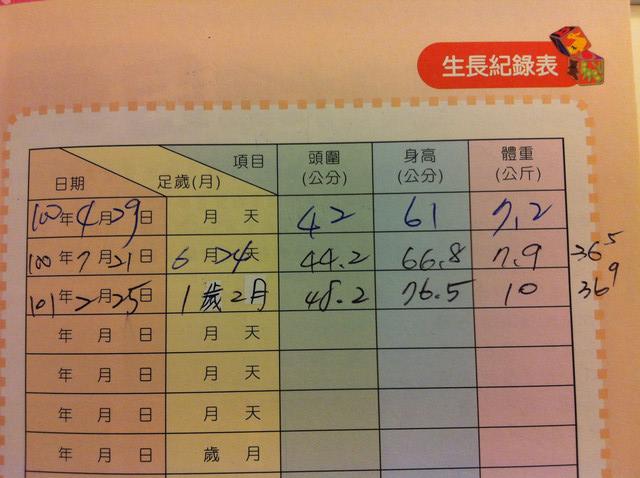 生長紀錄表
日期 足歲(月) 項目 頭圍(公分) 身高(公分) 體重(公斤)
100年4月29日 月 天 42 61 7.2
100年7月21日 6月24天 44.2 66.8 7.9 36⁵
101年2月25日 1歲2月 48.2 76.5 10 36⁹
年 月 日 月 天
年 月 日 月 天
年 月 日 月 天
年 月 日 歲 月